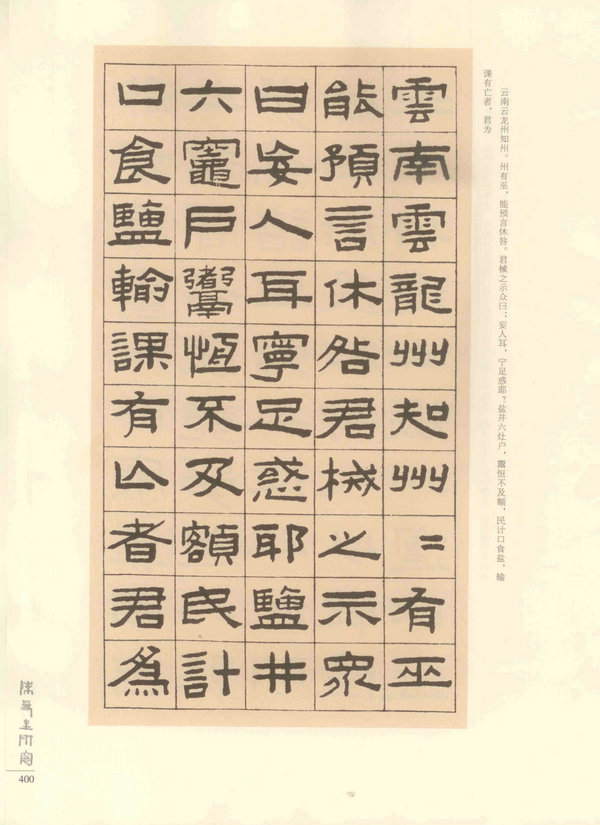 云南云龙州知州。州有巫，能预言休咎。君械之示众曰：妄人耳，宁足惑耶？盐井六灶户，鬻恒不及额，民计口食盐，输
课有亡者，君为
雲南雲龍州知州〻有巫
能預言休咎君械之示眾
曰妄人耳寧足惑耶鹽井
六竈戶鬻恆不及額民計
口食鹽輸課有亡者君為
400